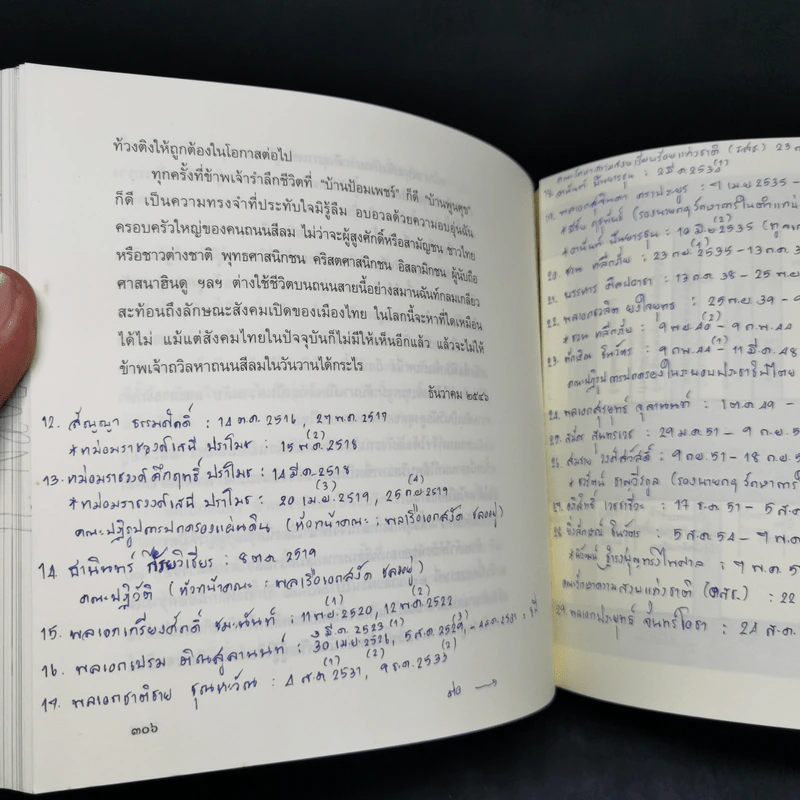 ท้วงติงให้ถูกต้องในโอกาสต่อไป
ทุกครั้งที่ข้าพเจ้ารำลึกชีวิตที่ “บ้านป้อมเพชร์” ก็ดี “บ้านพูนศุข”
ก็ดี เป็นความทรงจำที่ประทับใจมิรู้ลืม อบอวลด้วยความอบอุ่นฉัน
ครอบครัวใหญ่ของคนถนนสีลม ไม่ว่าจะผู้สูงศักดิ์หรือสามัญชน ชาวไทย
หรือชาวต่างชาติ พุทธศาสนิกชน คริสตศาสนิกชน อิสลามิกชน ผู้นับถือ
ศาสนาฮินดู ฯลฯ ต่างใช้ชีวิตบนถนนสายนี้อย่างสมานฉันท์กลมเกลียว
สะท้อนถึงลักษณะสังคมเปิดของเมืองไทย ในโลกนี้จะหาที่ใดเหมือน
ได้ไม่ แม้แต่สังคมไทยในปัจจุบันก็ไม่มีให้เห็นอีกแล้ว แล้วจะไม่ให้
ข้าพเจ้าถวิลหาถนนสีลมในวันวานได้กระไร
ธันวาคม ๒๕๔๖
12. สัญญา ธรรมศักดิ์ : 14 ต.ค. 2516, 27 พ.ค. 2517
*หม่อมราชวงศ์เสนีย์ ปราโมช : 15 พ.ค. (2) 2518
13. หม่อมราชวงศ์คึกฤทธิ์ ปราโมช : 14 มี.ค. 2518
*หม่อมราชวงศ์เสนีย์ ปราโมช : 20 เม.ย. (3) 2519, 25 ก.ย. (4) 2519
คณะปฏิรูปการปกครองแผ่นดิน (หัวหน้าคณะ : พลเรือเอกสงัด ชลออยู่)
14 ธานินทร์ กรัยวิเชียร : 8 ต.ค. 2519
คณะปฏิวัติ (หัวหน้าคณะ : พลเรือเอกสงัด ชลออยู่)
15. พลเอกเกรียงศักดิ์ ชมะนันทน์ : 11 พ.ย. (1) 2520, 12 พ.ค. (2) 2522
16. พลเอกเปรม ติณสูลานนท์ : 3 มี.ค. 2523 (1) 30 เม.ย. 2526, (2) 5 ส.ค. 2529, (3) - 4 ส.ค. 2531
17. พลเอกชาติชาย ชุณหะวัณ : 4 ส.ค. (1) 2531, 9 ธ.ค. (2) 2533
ต่อ →
๓๐๖
คณะรักษาความสงบเรียบร้อยแห่งชาติ (รสช.) 23
18. อานันท์ ปันยารชุน : 2 มี.ค. 2534 (1)
19. พลเอกสุจินดา คราประยูร : 7 เม.ย. 2535 -
(รองนายกฯ รักษาการในตำแหน่
*อานันท์ ปันยารชุน : 10 มิ.ย. (2) 2535
20. ชวน หลีกภัย : 23 ก.ย. (1) 2535 - 13 ก.ค. 3
21. บรรหาร ศิลปอาชา : 13 ก.ค. 38 - 25 พ.ย.
22. พลเอกชวลิต ยงใจยุทธ : 25 พ.ย. 39 -
*ชวน หลีกภัย : 9 พ.ย. 40 (2) - 9 ก.พ. 44
23. ทักษิณ ชินวัตร : 9 ก.พ. 44 (1) - 11 มี.ค. 48
คณะปฏิรูปการปกครองในระบอบประชาธิปไตย
24. พลเอกสุรยุทธ์ จุลานนท์ : 1 ต.ค. 49 -
25. สมัคร สุนทรเวช : 29 ม.ค. 51 - 9 ก.ย. 5
26. สมชาย วงศ์สวัสดิ์ : 9 ก.ย. 51 - 18 ก.ย. 5
(รองนายกฯ รักษาการ
27. อภิสิทธิ์ เวชชาชีวะ : 17 ธ.ค. 51 - 5 ส.ค.
28. ยิ่งลักษณ์ ชินวัตร : 5 ส.ค. 54 - 7 พ.ค.
*นิวัฒน์ธำรง บุญทรงไพศาล : 7 พ.ค. 5
คณะรักษาความสงบแห่งชาติ (คสช.) : 22
29. พลเอกประยุทธ์ จันทร์โอชา : 24 ส.ค.